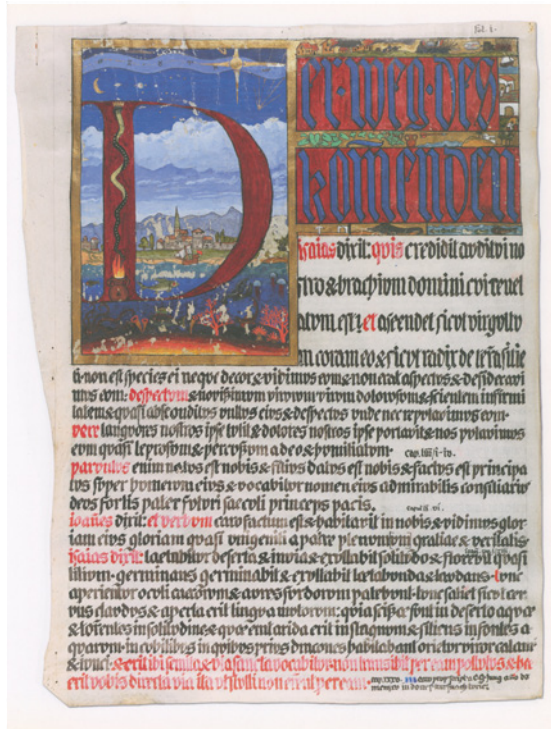 fol. i.
Der weg des
kom̄enden
isaias dixit: quis credidit auditui no
stro & brachium domini cui revel
atum est? et ascendet sicut virgultu
m coram eo & sicut radix de terra sitie
ti. non est species ei neque decor & vidimus eum & non erat aspectus & desideravi
mus eum: despectum & novissimum virorum virum dolorosum & scientem infirmi
tatem & quasi absconditus vultus eius & despectus unde nec reputavimus eum.
vere languores nostros ipse tulit & dolores nostros ipse portavit & nos putavimus
eum quasi leprosum & percussum a deo & humiliatum. cap. liii/i-iv.
parvulus enim natus est nobis & filius datus est nobis & factus est principa
tus super humerum eius & vocabitur nomen eius admirabilis consiliarius
deus fortis pater futuri saeculi princeps pacis. caput ix. vi.
ioañes dixit: et verbum caro factum est & habitavit in nobis & vidimus glor
iam eius gloriam quasi unigeniti a patre plenum gratiae & veritatis.
isaias dixit: laetabitur deserta & invia & exultabit solitudo & florebit quasi
lilium. germinans germinabit & exultabit laetabunda & laudans. tunc
aperientur oculi caecorum & aures sordorum patebunt. tunc saliet sicut cer
vus claudus & aperta erit lingua mutorum: quia scissae sunt in deserto aquae
& torrentes in solitudine & quae erat arida erit in stagnum & sitiens in fontes a
quarum. in cubilibus in quibus prius dracones habitabant orietur viror calami
& iunci. & erit ibi semita & via sancta vocabitur. non transibit per eam pollutus & haec
erit vobis directa via ita ut stulti non errent per eam.